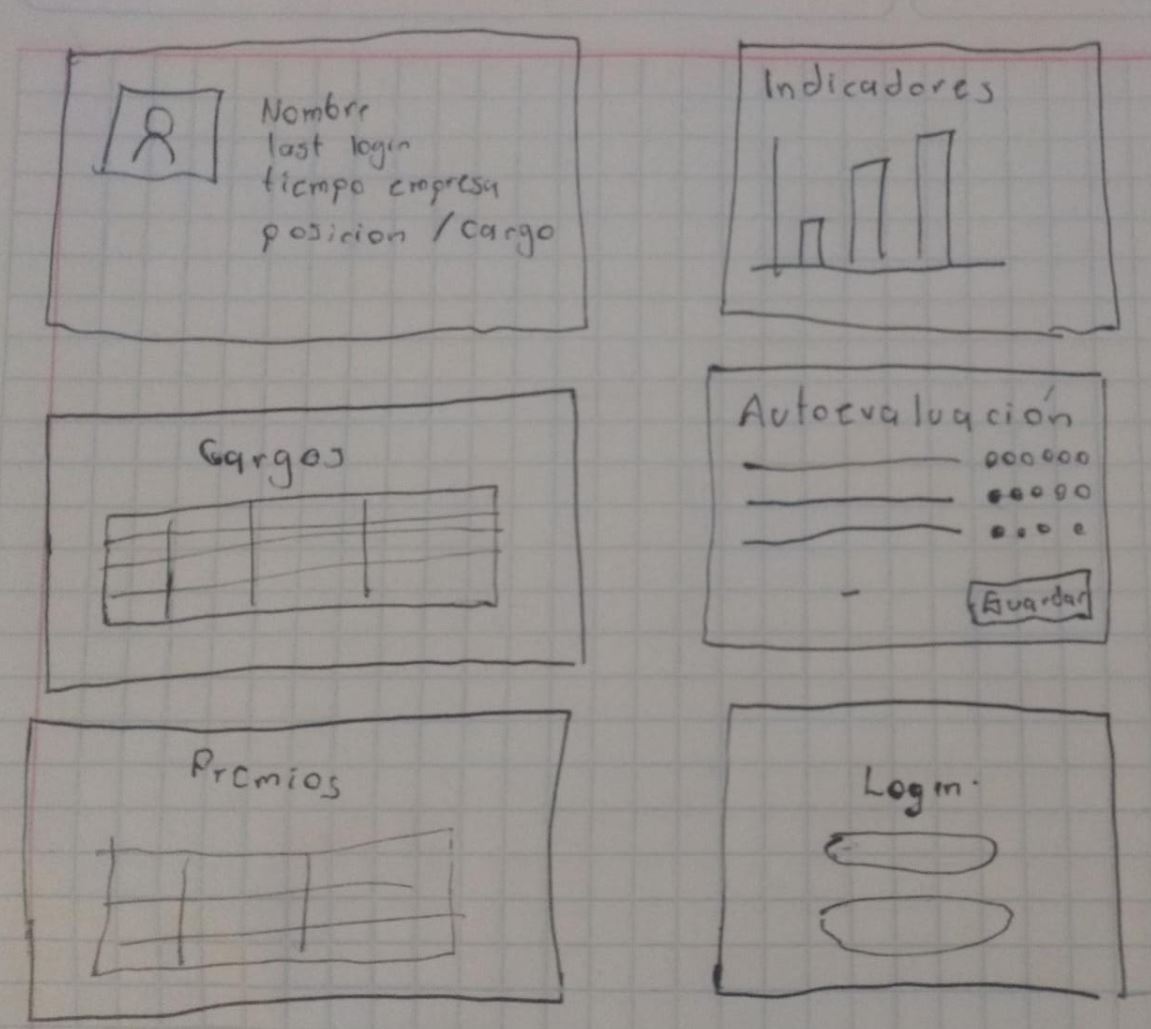 Nombre
last login
tiempo empresa
posicion / cargo
Indicadores
Cargos
Autoevaluación
Guardar
Premios
Login